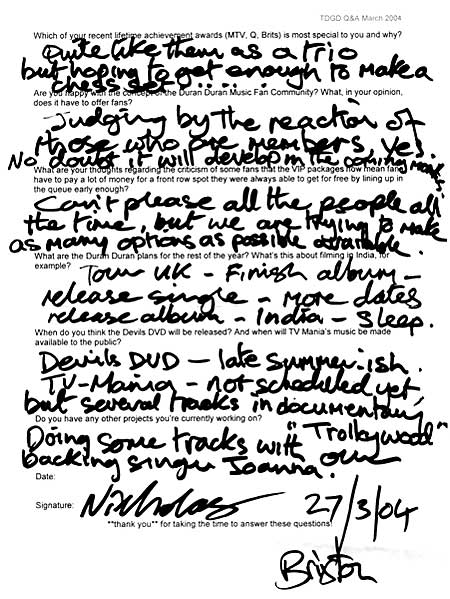 TDGD Q&A March 2004
Which of your recent lifetime achievement awards (MTV, Q, Brits) is most special to you and why?
Quite like them as a trio
but hoping to get enough to make a
chess set.....
Are you happy with the concept of the Duran Duran Music Fan Community? What, in your opinion,
does it have to offer fans?
Judging by the reaction of
those who are members, yes.
No doubt it will develop in the coming months
What are your thoughts regarding the criticism of some fans that the VIP packages now mean fans
have to pay a lot of money for a front row spot they were always able to get for free by lining up in
the queue early enough?
Can't please all the people all
the time, but we are trying to make
as many options as possible available.
What are the Duran Duran plans for the rest of the year? What's this about filming in India, for
example?
Tour UK - Finish album -
release single - More dates
release album - India - Sleep.
When do you think the Devils DVD will be released? And when will TV Mania's music be made
available to the public?
Devils DVD - late summer-ish.
TV-Mania - not scheduled yet,
but several tracks in documentary
"Trollywood"
Do you have any other projects you're currently working on?
Doing some tracks with our
backing singer Joanna.
Date:
27/3/04
Signature: Nicholas
**thank you** for taking the time to answer these questions!
Brixton